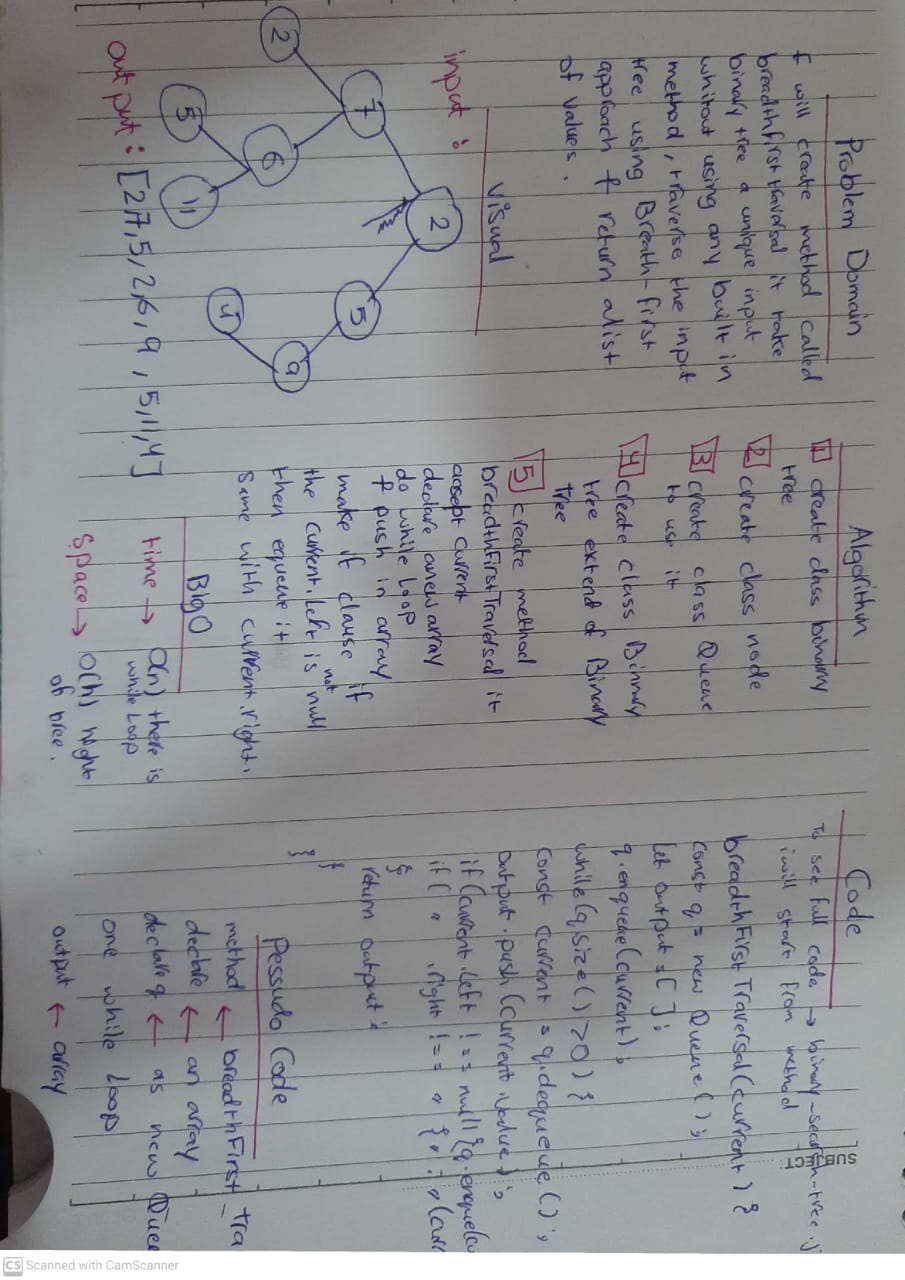 Problem Domain
I will create method called
breadthfirst traversal it take
binary tree a unique input
whitout using any built in
method, traverse the input
tree using Breath-first
approach & return alist
of values.
visual
input :
2
7
5
2
6
9
5
11
4
output : [2,7,5,2,6,9,5,11,4]
Algorithm
1 create class binary
tree
2 create class node
3 create class Queue
to use it
4 create class Binary
tree extend of Binary
tree
5 create method
breadthFirstTraversal it
accept current
declare anew array
do while loop
& push in array if
make if clause if
the current.left is not null
then equeue it
Same with current.right.
Big O
time → O(n) there is
while Loop
Space → O(h) hight
of tree.
Code
To see full code → binary-search-tree.j
i will start from method
breadthFirstTraversal(current) {
const q = new Queue();
let output = [];
q.enqueue(current);
while(q.size() >0) {
const current = q.dequeue();
output.push(current.value);
if(current.left !== null{q.enqueue(cu
if( " .right !== " { " . " (curr
}
return output;
}
}
Pessudo Code
method ← breadthFirst-tra
declare ← an array
declare q ← as new Quee
one while Loop
output ← array
SUBJECT:
CS Scanned with CamScanner